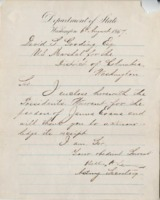 Department of State
Washington, 8th August 1867
David S. Gooding Esq
U.S. Marshal for the
District of Columbia,
Washington
Sir
I enclose herewith the
President's Warrant for the
pardon of James Evans and
will thank you to acknow-
ledge the receipt.
I am Sir
Your Obedient Servant
Acting Secretary